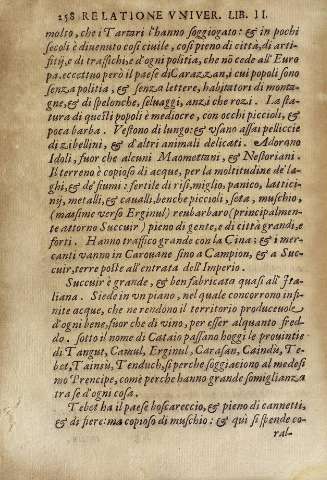 258 RELATIONE VNIVER. LIB. II.
molto, che i Tartari l'hanno soggiogato: & in pochi
secoli è diuenuto così ciuile, così pieno di città, di arti-
fitij, e di traffichi, e d'ogni politia, che nõ cede all'Euro
pa. eccettuo però il paese di Carazzan, i cui popoli sono
senza politia, & senza lettere, habitatori di monta-
gne, & di spelonche, seluaggi, anzi che rozi. La sta-
tura di questi popoli è mediocre, con occhi piccioli, &
poca barba. Vestono di lungo: & vsano assai pelliccie
di zibellini, & d'altri animali delicati. Adorano
Idoli, fuor che alcuni Maomettani, & Nestoriani.
Il terreno è copioso di acque, per la moltitudine de' la-
ghi, & de' fiumi: fertile di risi, miglio, panico, latticí-
nij, metalli, & caualli, benche piccioli, seta, muschio,
(massime verso Erginul) reubarbaro (principalmen-
te attorno Succuir) pieno di gente, e di città grandi, e
forti. Hanno traffico grande con la Cina; & i mer-
canti vanno in Carouane sino a Campion, & a Suc-
cuir, terre poste all'entrata dell'Imperio.
Succuir è grande, & ben fabricata quasi all'Ita-
liana. Siede in vn piano, nel quale concorrono infi-
nite acque, che ne rendono il territorio produceuole
d'ogni bene, fuor che di vino, per esser alquanto fred-
do. sotto il nome di Cataio passano hoggi le prouintie
di Tangut, Camul, Erginul, Carasan, Caindù, Te-
bet, Tainiù, Tenduch, sì perche soggiaciono al medesi
mo Prencipe, come perche hanno grande somiglianza
tra se d'ogni cosa.
Tebet ha il paese boscareccio, & pieno di cannetti,
& di fiere: ma copioso di muschio: & qui si spende co-
ral-